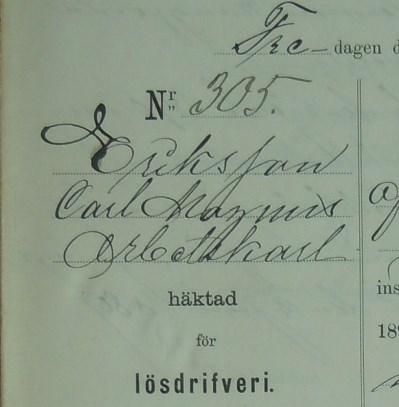 Fre-dagen d
Nr 305.
Eriksson
Carl Magnus
Arbetskarl
häktad
för
lösdrifveri.
ins
189